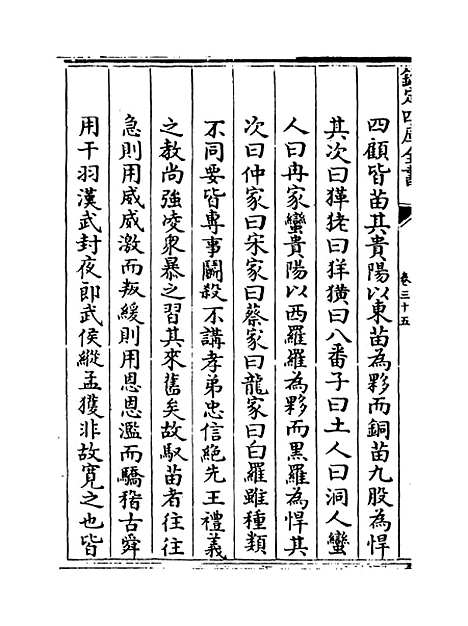 欽定四庫全書
卷三十五
四顧皆苗其貴陽以東苗為夥而銅苗九股為悍
其次曰獞狫曰𤝞獚曰八番子曰土人曰洞人蠻
人曰冉家蠻貴陽以西羅羅為夥而黑羅為悍其
次曰仲家曰宋家曰蔡家曰龍家曰白羅雖種類
不同要皆專事鬬殺不講孝弟忠信絶先王禮義
之教尚強凌衆暴之習其來舊矣故馭苗者往往
急則用威威激而叛緩則用恩恩濫而驕稽古舜
用干羽漢武封夜郎武侯縱孟獲非故寛之也皆